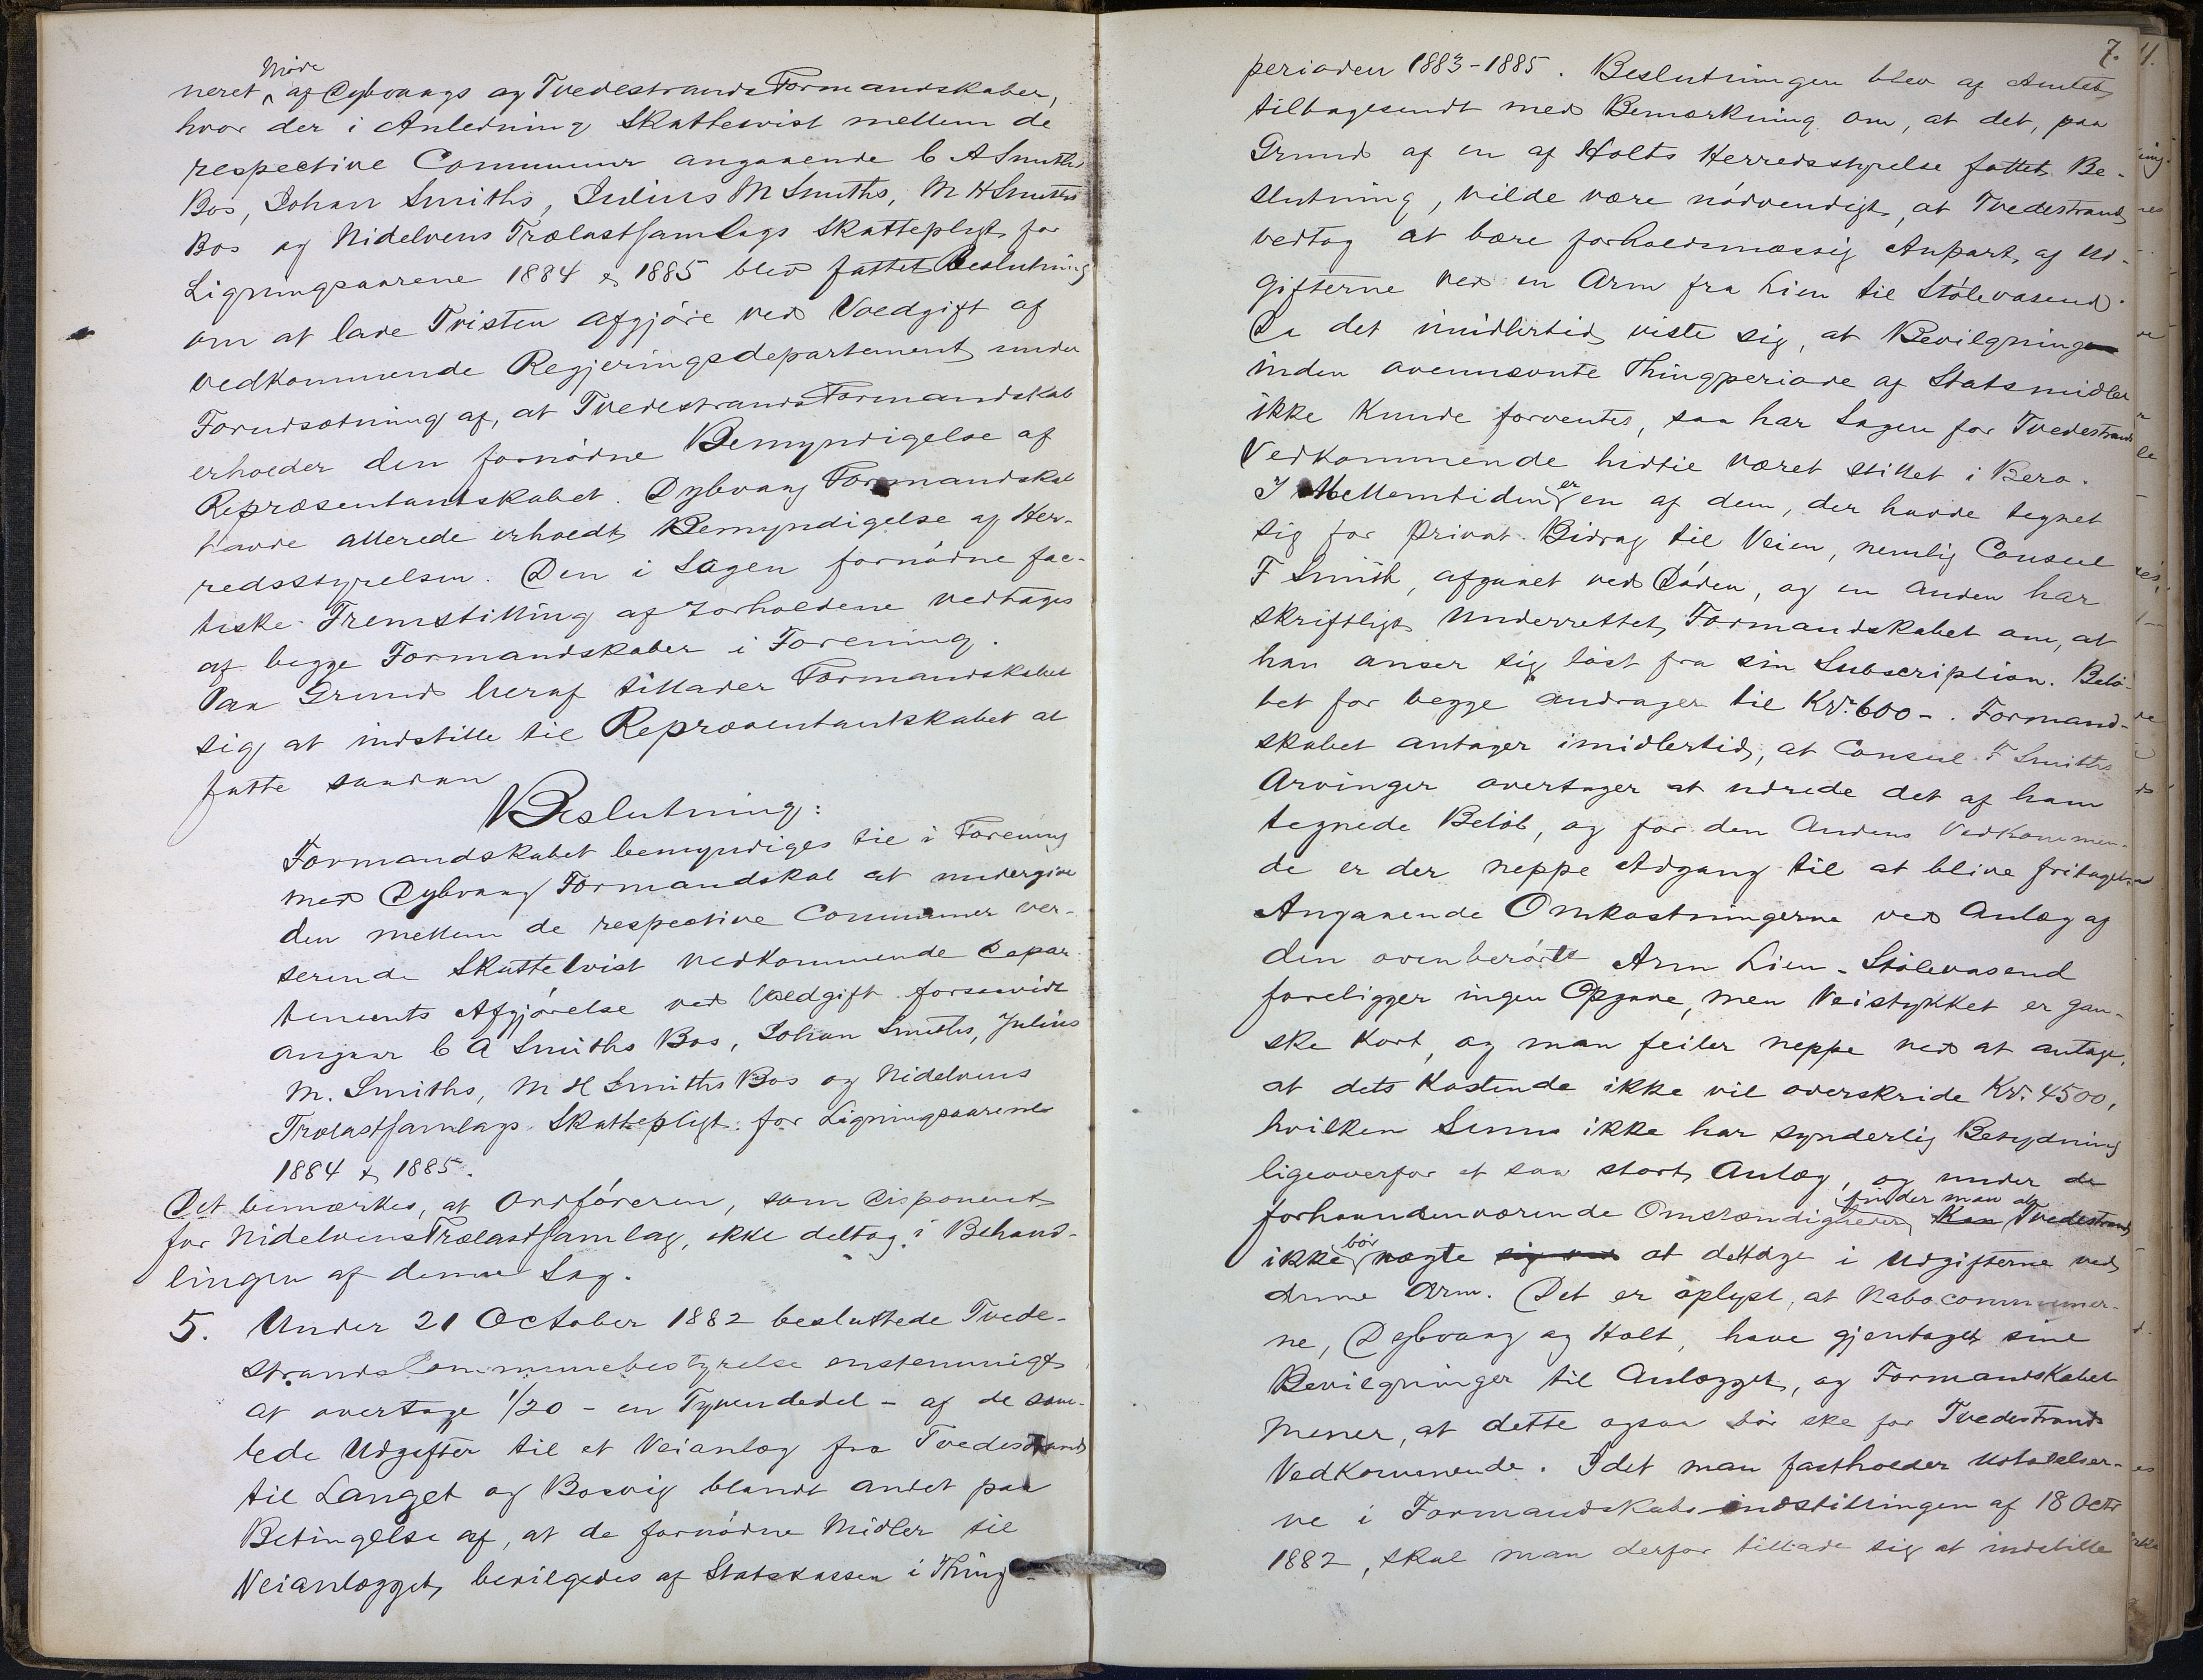 Møde
neret af Dybvaags og Tvedestrands Formandskaber,
hvor der i Anledning Skattetvist mellem de
respective Communer angaaende C A Smiths
Bos, Johan Smiths, Julius M Smiths, M H Smiths
Bos og Nidelvens Trælastsamlags Skattepligt for
Ligningsaarene 1884 & 1885 blev fattet Beslutning
om at lade Tvisten afgjøre ved Voldgift af
vedkommende Regjeringsdepartement under
Forudsætning af, at Tvedestrands Formandskab
erholder den fornødne Bemyndigelse af
Repræsentantskabet. Dybvaag Formandskab
havde allerede erholdt Bemyndigelse af Her-
redsstyrelsen. Den i Sagen fornødne fac-
tiske Fremstilling af Forholdene vedtages
af begge Formandskaber i Forening.
Paa Grund heraf tillader Formandskabet
sig at indstille til Repræsentantskabet at
fatte saadan
Beslutning:
Formandskabet bemyndiges til i Forening
med Dybvaag Formandskab at undergive
den mellem de respective Communer ver-
serende Skattetvist vedkommende Depar-
tements Afgjørelse ved Voldgift forsaavidt
angaar C A Smiths Bos, Johan Smiths, Julius
M. Smiths, M H Smiths Bos og Nidelvens
Trælastsamlags Skattepligt for Ligningsaarene
1884 & 1885.
Det bemærkes, at Ordføreren, som Disponent
for Nidelvens Trælastsamlag, ikke deltog i Behand-
lingen af denne Sag.
5. Under 21 October 1882 besluttede Tvede-
strands Communebestyrelse enstemmigt
at overtage 1/20 - en Tyvendedel - af de sam-
lede Udgifter til et Veianlæg fra Tvedestrand
til Langet og Bosvig blandt andet paa
Betingelse af, at de fornødne Midler til
Veianlægget bevilgedes af Statskassen i Thing-
7.
perioden 1883-1885. Beslutningen blev af Amtet
tilbagesendt med Bemærkning om, at det, paa
Grund af en af Holts Herredsstyrelse fattet Be-
slutning, vilde være nødvendigt, at Tvedestrand
vedtog at bære forholdsmæssig Anpart af Ud-
gifterne ved en Arm fra Lien til Stølevasend.
Da det imidlertid viste sig, at Bevilgning
inden ovennævnte Thingperiode af Statsmidler
ikke kunde forventes, saa har Sagen for Tvedestrands
Vedkommende hidtil været stillet i Bero.
I Mellemtiden er en af dem, der havde tegnet
sig for privat Bidrag til Veien, nemlig Consul
F Smith, afgaaet ved Døden, og en anden har
skriftligt underrettet Formandskabet om, at
han anser sig løst fra sin Subscription. Belø-
bet for begge andrager til Kr. 600-. Formand-
skabet antager imidlertid, at Consul F Smiths
Arvinger overtager at udrede det af ham
tegnede Beløb, og for den Andens Vedkommen-
de er der neppe Adgang til at blive fritaget
Angaaende Omkostningerne ved Anlæg af
den ovenberørte Arm Lien - Stølevasend
foreligger ingen Opgave, men Veistykket er gan-
ske kort, og man feiler neppe ved at antage,
at dets Kostende ikke vil overskride Kr. 4500,
hvilken Sum ikke har synderlig Betydning
ligeoverfor et saa stort Anlæg, og under de
forhaandenværende Omstændigheder finder man at Kan Tvedestrand
ikke bør nægte sig ved at deltage i Udgifterne ved
denne Arm. Det er oplyst, at Nabocommuner-
ne, Dybvaag og Holt, have gjentaget sine
Bevilgninger til Anlægget, og Formandskabet
mener, at dette ogsaa bør ske for Tvedestrands
Vedkommende. Idet man fastholder Udtalelser-
ne i Formandskabs-indstillingen af 18 Octr
1882, skal man derfor tillade sig at indstille